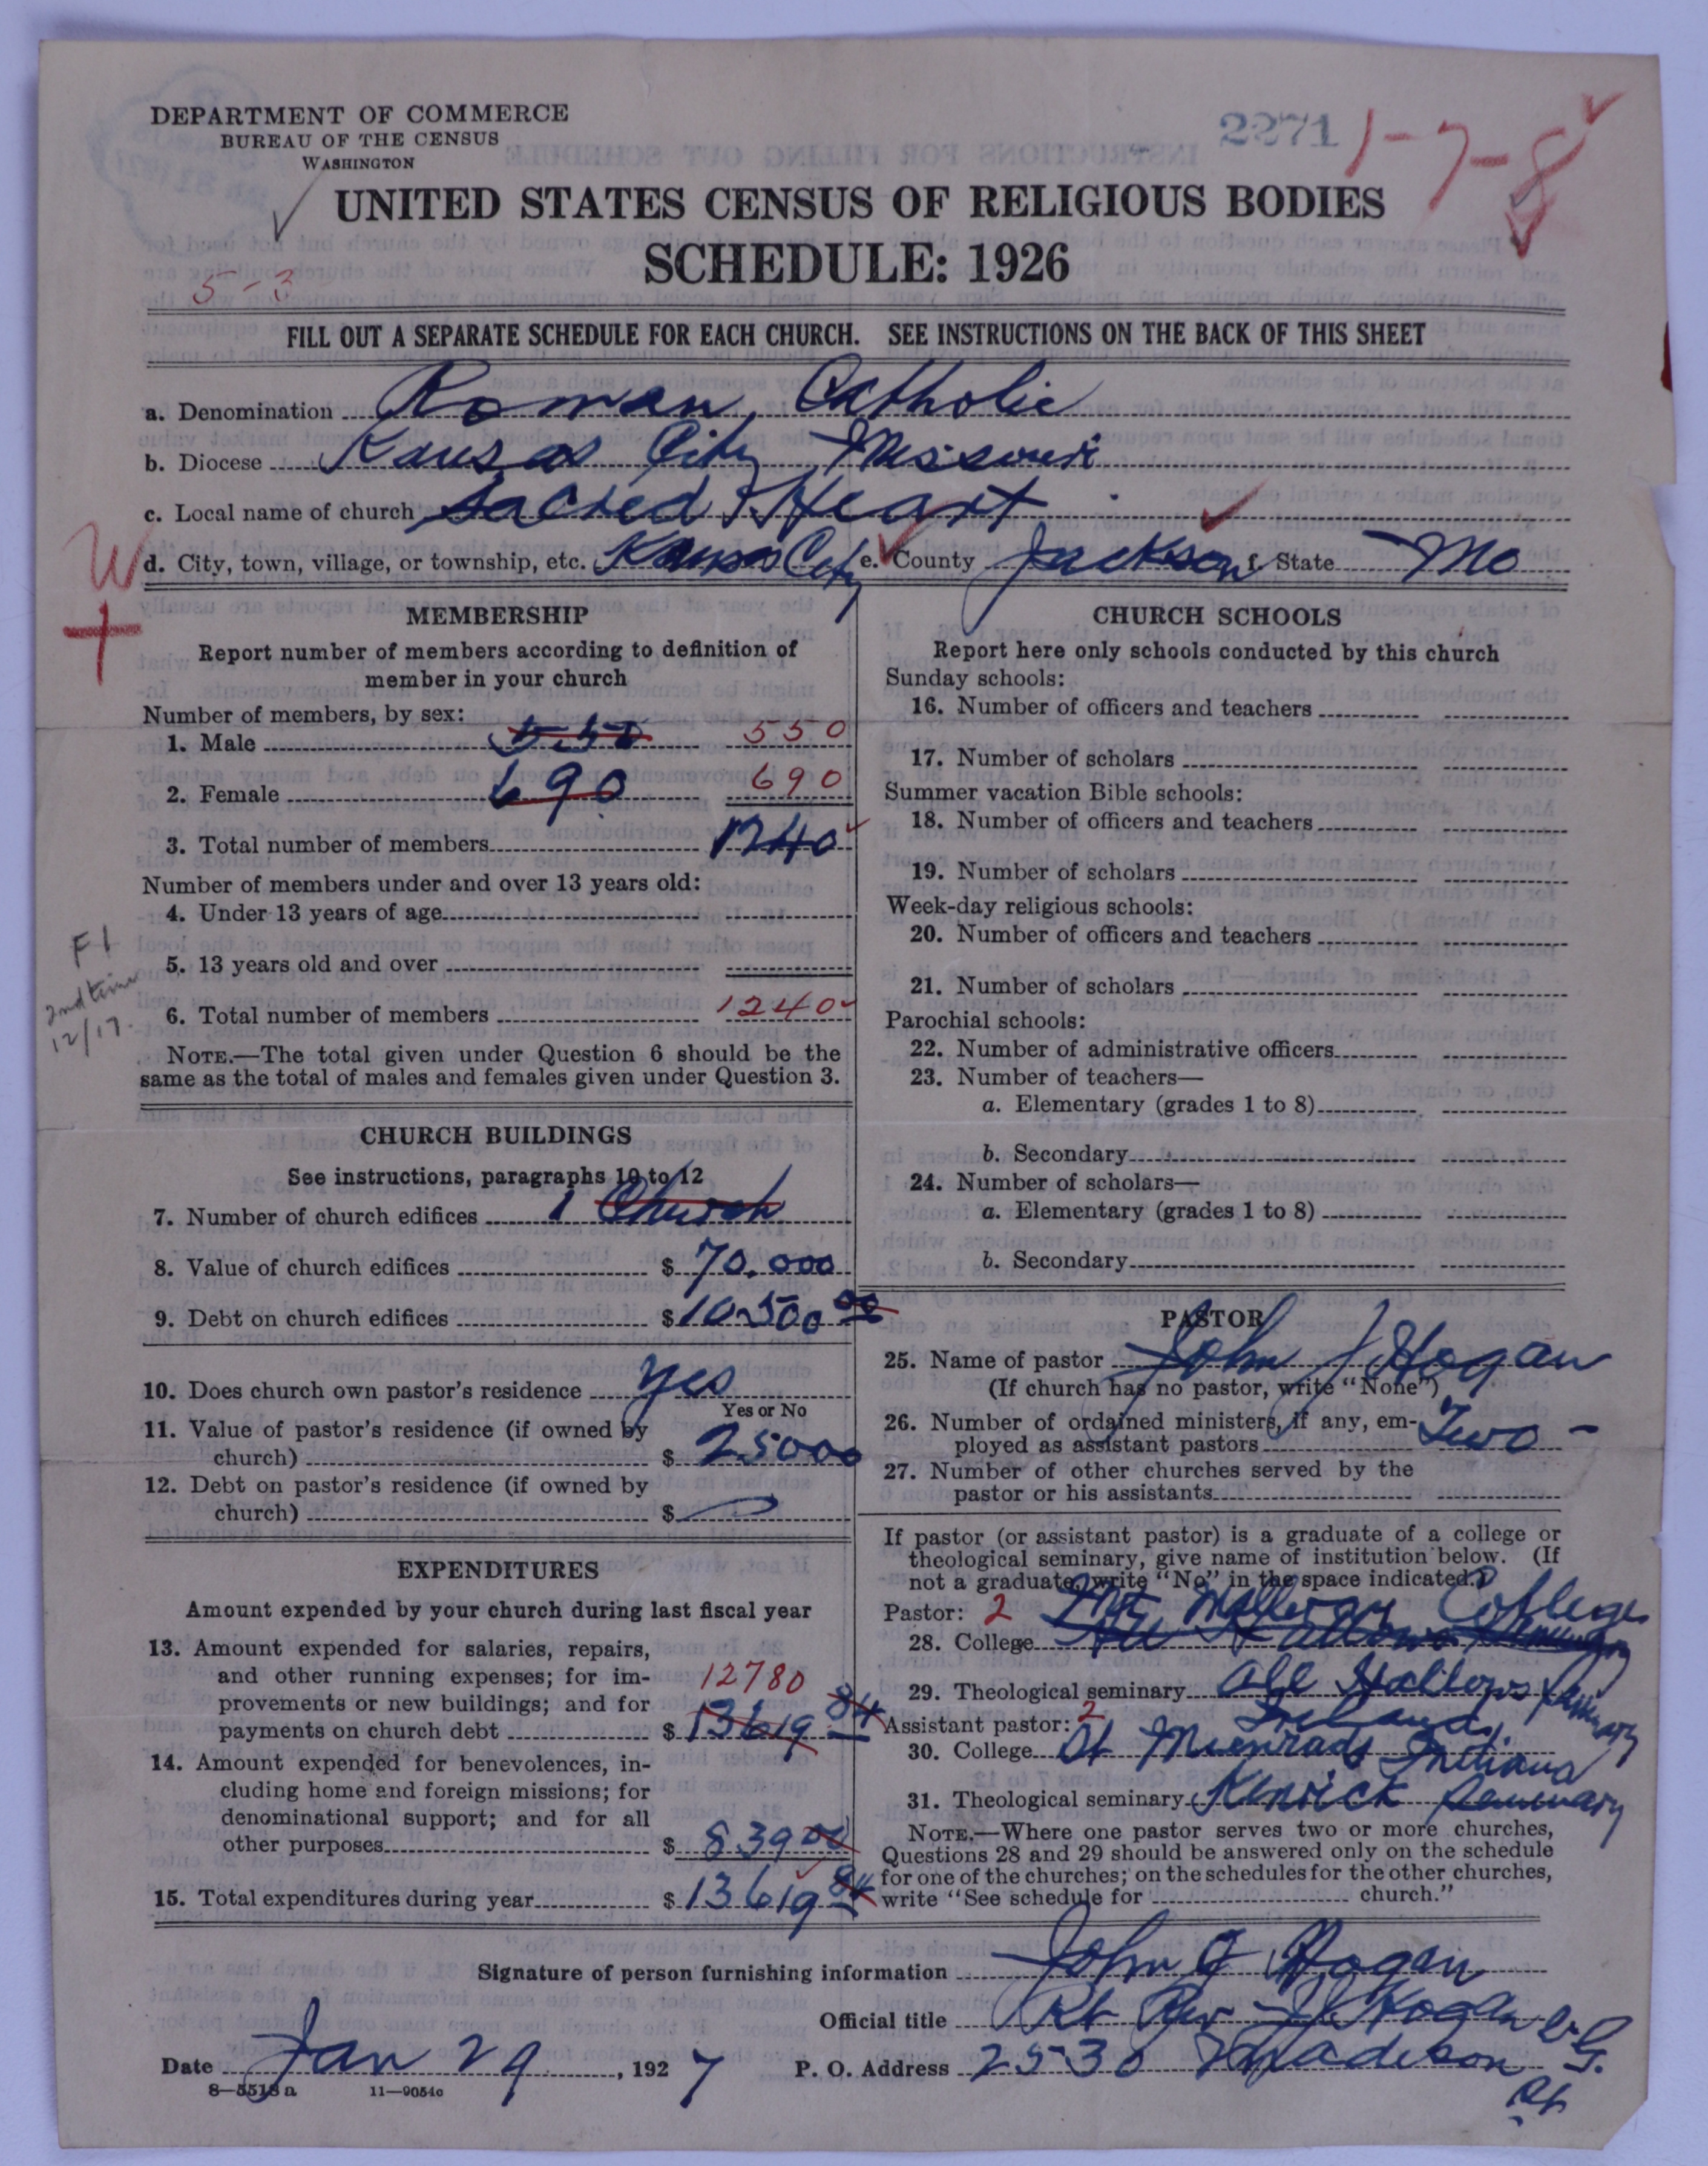 DEPARTMENT OF COMMERCE
BUREAU OF THE CENSUS
WASHINGTON
2271
1-7-8
UNITED STATES CENSUS OF RELIGIOUS BODIES
SCHEDULE: 1926
5-3
FILL OUT A SEPARATE SCHEDULE FOR EACH CHURCH. SEE INSTRUCTIONS ON THE BACK OF THIS SHEET
a. Denomination Roman Catholic
b. Diocese Kansas City Missouri
c. Local name of church Sacred Heart
W d. City, town, village, or township, etc. Kansas City e. County Jackson f. State Mo
MEMBERSHIP
Report number of members according to definition of
member in your church
Number of members, by sex:
1. Male 550 550
2. Female 690 690
3. Total number of members 1240
Number of members under and over 13 years old:
4. Under 13 years of age
F1
5. 13 years old and over
2nd time
12/17
6. Total number of members 1240
NOTE.—The total given under Question 6 should be the
same as the total of males and females given under Question 3.
CHURCH BUILDINGS
See instructions, paragraphs 10 to 12
7. Number of church edifices 1 Church
8. Value of church edifices $ 70.000
9. Debt on church edifices $ 10500 00
10. Does church own pastor's residence yes
Yes or No
11. Value of pastor's residence (if owned by
church) $ 25000
12. Debt on pastor's residence (if owned by
church) $
EXPENDITURES
Amount expended by your church during last fiscal year
13. Amount expended for salaries, repairs,
and other running expenses; for im- 12780
provements or new buildings; and for
payments on church debt $ 13619 84
14. Amount expended for benevolences, in-
cluding home and foreign missions; for
denominational support; and for all
other purposes $ 839 00
15. Total expenditures during year $ 13619 84
CHURCH SCHOOLS
Report here only schools conducted by this church
Sunday schools:
16. Number of officers and teachers
17. Number of scholars
Summer vacation Bible schools:
18. Number of officers and teachers
19. Number of scholars
Week-day religious schools:
20. Number of officers and teachers
21. Number of scholars
Parochial schools:
22. Number of administrative officers
23. Number of teachers—
a. Elementary (grades 1 to 8)
b. Secondary
24. Number of scholars—
a. Elementary (grades 1 to 8)
b. Secondary
PASTOR
25. Name of pastor John J Hogan
(If church has no pastor, write "None")
26. Number of ordained ministers, if any, em-
ployed as assistant pastors Two
27. Number of other churches served by the
pastor or his assistants
If pastor (or assistant pastor) is a graduate of a college or
theological seminary, give name of institution below. (If
not a graduate, write "No" in the space indicated.)
Pastor: 2
28. College College
29. Theological seminary All Hallows Seminary
Ireland
Assistant pastor: 2
30. College St Meinrads Indiana
31. Theological seminary Kenrick Seminary
NOTE.—Where one pastor serves two or more churches,
Questions 28 and 29 should be answered only on the schedule
for one of the churches; on the schedules for the other churches,
write "See schedule for church."
Signature of person furnishing information John J Hogan
Official title Rt Rev J J Hogan V.G.
Date Jan 29, 1927 P. O. Address 2530 Madison
St.
8—5518a 11—9054c